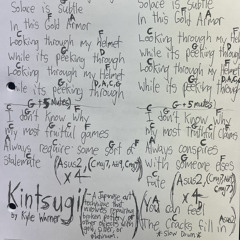 Solace is subtle
In this Gold Armor
Looking through my helmet
While its peeking through
Looking through my helmet
While its peeking through
G+5 mutes
I don't know why
my most fruitful games
Always require some sort of
Stalemate
(Asus2, Cmaj7, Add9, Cmaj7)
x 4
Kintsugi
by Kyle Warner
(A Japanese art technique that involves repairing broken pottery or other objects with gold, silver, or platinum.)
Solace is subtle
In this Gold Armor
Looking through my helmet
While its peeking through
Looking through my helmet
While its peeking through
G+5 mutes
I don't know why
my most truthful claims
Always conspires
with someone else's
Fate
(Asus2, Cmaj7, Add9, Cmaj7)
x 4
You can feel
The cracks fill in
Slow Down